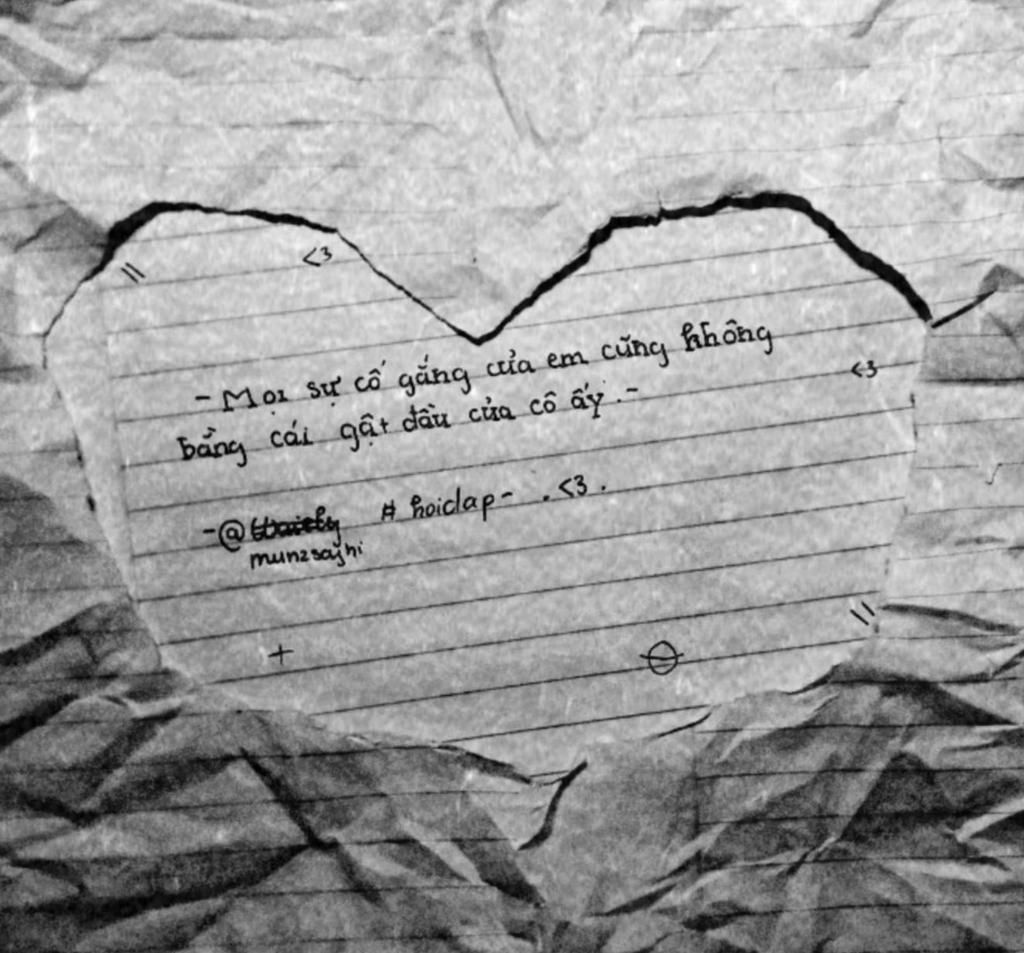 <3
- Mọi sự cố gắng của em cũng không
<3
bằng cái gật đầu của cô ấy. -
- @ # hoiclap - . <3 .
munzsayhi